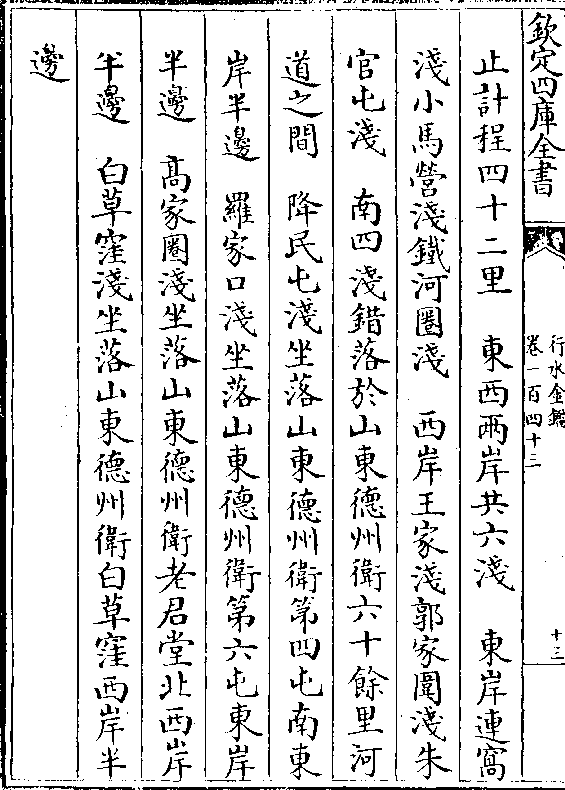 欽定四庫全書
行水金鑑
卷一百四十三
十三
止計程四十二里　東西兩岸共六淺　東岸連窩
淺小馬營淺鐵河圈淺　西岸王家淺郭家圍淺朱
官屯淺　南四淺錯落於山東德州衛六十餘里河
道之間　降民屯淺坐落山東德州衛第四屯南東
岸半邊　羅家口淺坐落山東德州衛第六屯東岸
半邊　高家圈淺坐落山東德州衛老君堂北西岸
半邊　白草窪淺坐落山東德州衛白草窪西岸半
邊